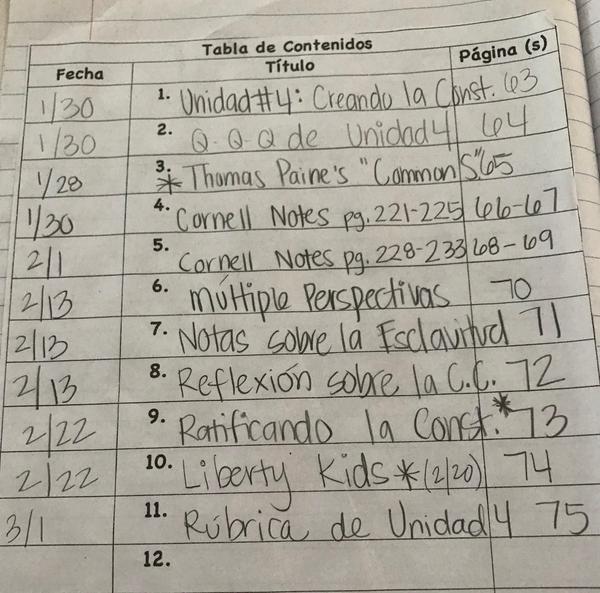 Tabla de Contenidos
Fecha Título Página (s)
1/30 1. Unidad#4: Creando la Const. 63
1/30 2. Q-Q-Q de Unidad 4 64
1/28 3. * Thomas Paine's "Common S" 65
1/30 4. Cornell Notes pg. 221-225 66-67
2/1 5. Cornell Notes pg. 228-233 68-69
2/13 6. múltiple Perspectivas 70
2/13 7. Notas sobre la Esclavitud 71
2/13 8. Reflexión sobre la C.C. 72
2/22 9. Ratificando la Const.* 73
2/22 10. Liberty Kids *(2/20) 74
3/1 11. Rúbrica de Unidad 4 75
12.